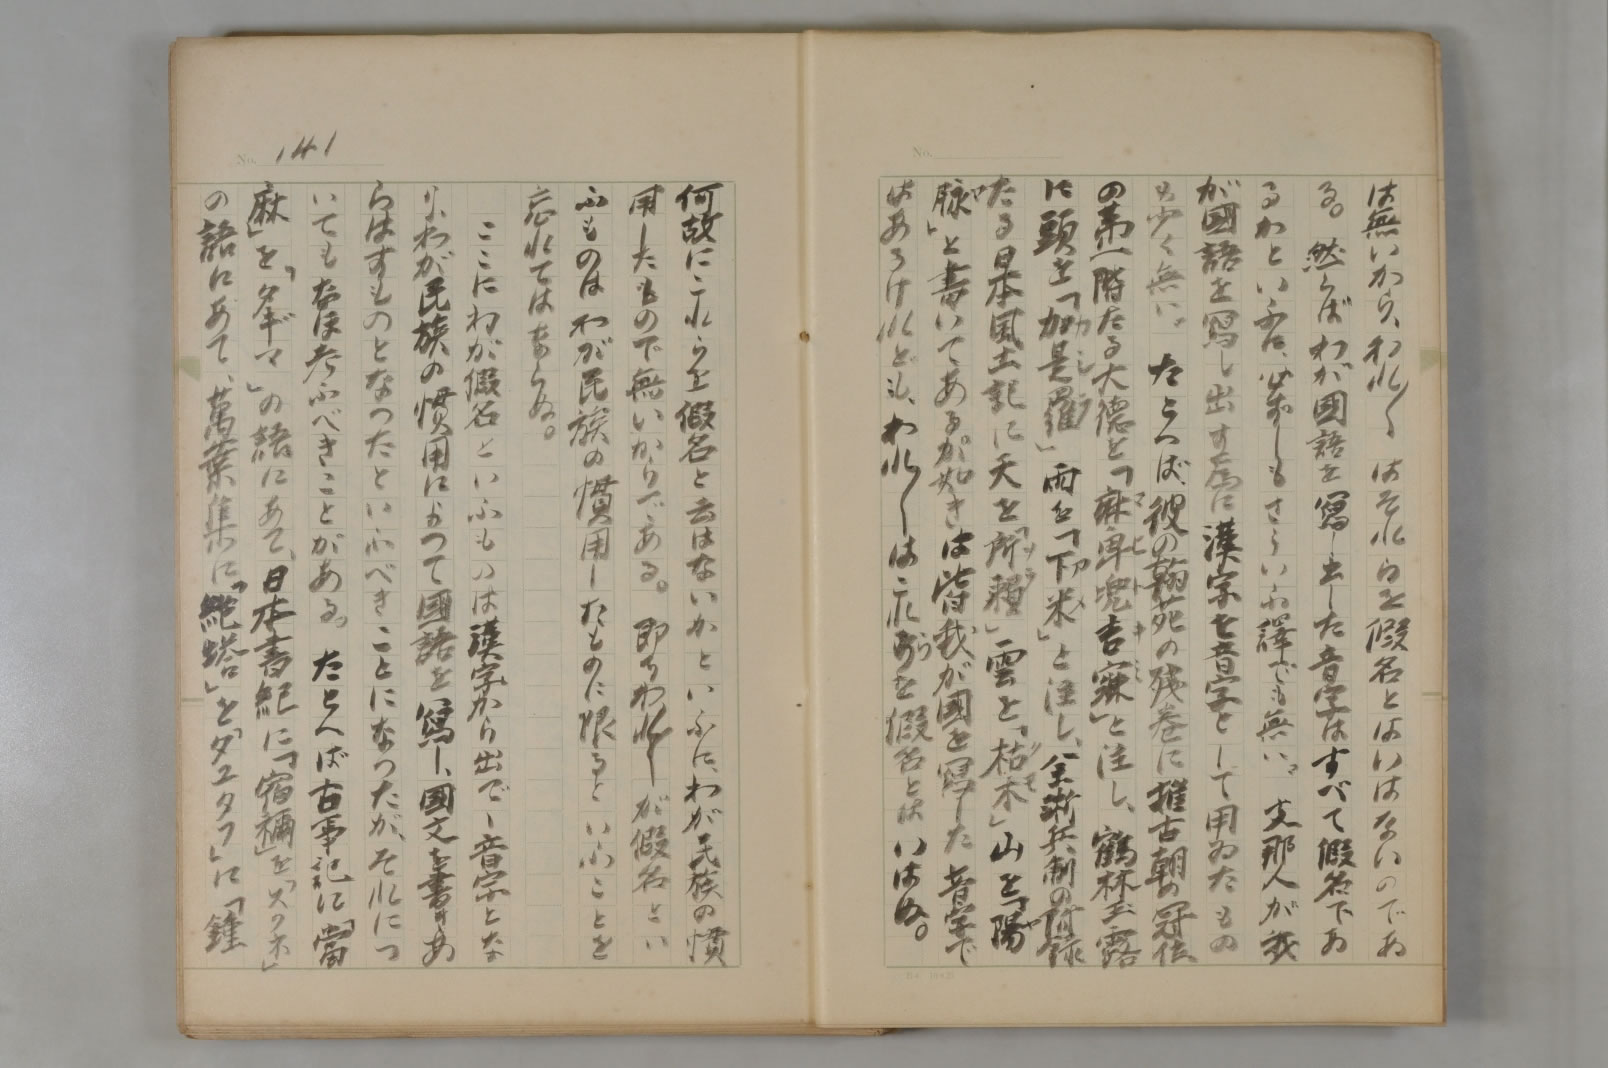 は無いから、われ〱はそれらを假名とはいはないのであ
る。然らばわが國語を寫し出した音字はすべて假名であ
るかといふに、必ずしもさういふ譯でも無い。支那人が我
が國語を寫し出す爲に漢字を音字として用ゐたもの
も少く無い。たとへば彼の翰苑の殘卷に推古朝の冠位
の第一階たる大德を「麻卑兜吉寐」と注し、鶴林玉露
に頭を「加是羅」雨を「下米」と注し、全浙兵制の附録
たる日本風土記に天を「所賴」雲を「枯木」山を「陽
脉」と書いてあるが如きは皆我が國を寫した音字で
はあるけれども、われ〱はこれらを假名とはいはぬ。
No.
No. 141
何故にこれらを假名と云はないかといふに、わが民族の慣
用したもので無いからである。即ちわれ〱が假名とい
ふものはわが民族の慣用したものに限るといふことを
忘れてはならぬ。
ここにわが假名といふものは漢字から出でし音字とな
り、わが民族の慣用によつて國語を寫し、國文を書きあ
らはすものとなつたといふべきことになつたが、それにつ
いてもなほ考ふべきことがある。たとへば古事記に「當
麻」を「タギマ」の語にあて、日本書紀に「宿禰」を「スクネ」
の語にあて、萬葉集に「絶塔」を「タユタフ」に「鍾